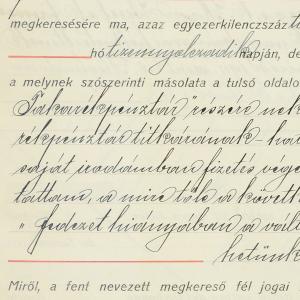 megkeresésére ma, azaz egyezerkilenczszáz
hó tizennyolczadik napján, de
a melynek szószerinti másolata a tulsó oldalo
Takarékpénztár" részére
rékpénztár titkárának
saját irodámban fizetés vége
tattam, a mire tőle a követk
„ Fedezet hiányában a vál
hetünk
Miről, a fent nevezett megkereső fél jogai